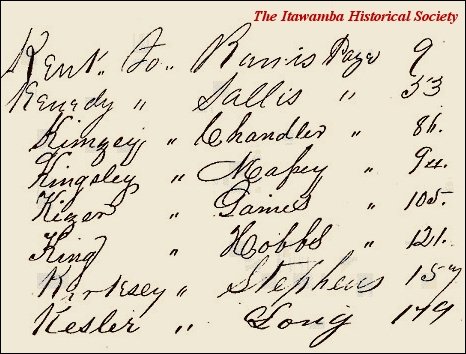 The Itawamba Historical Society
Kent. to.. Page 9
Kenedy " Sallis " 53
Kimzey, " Chandler " 86.
Kingsley " " 94.
Kizer " Gaines " 105.
King " Hobbs " 121.
Kirksey " Stephens 157
Kesler " Long 179